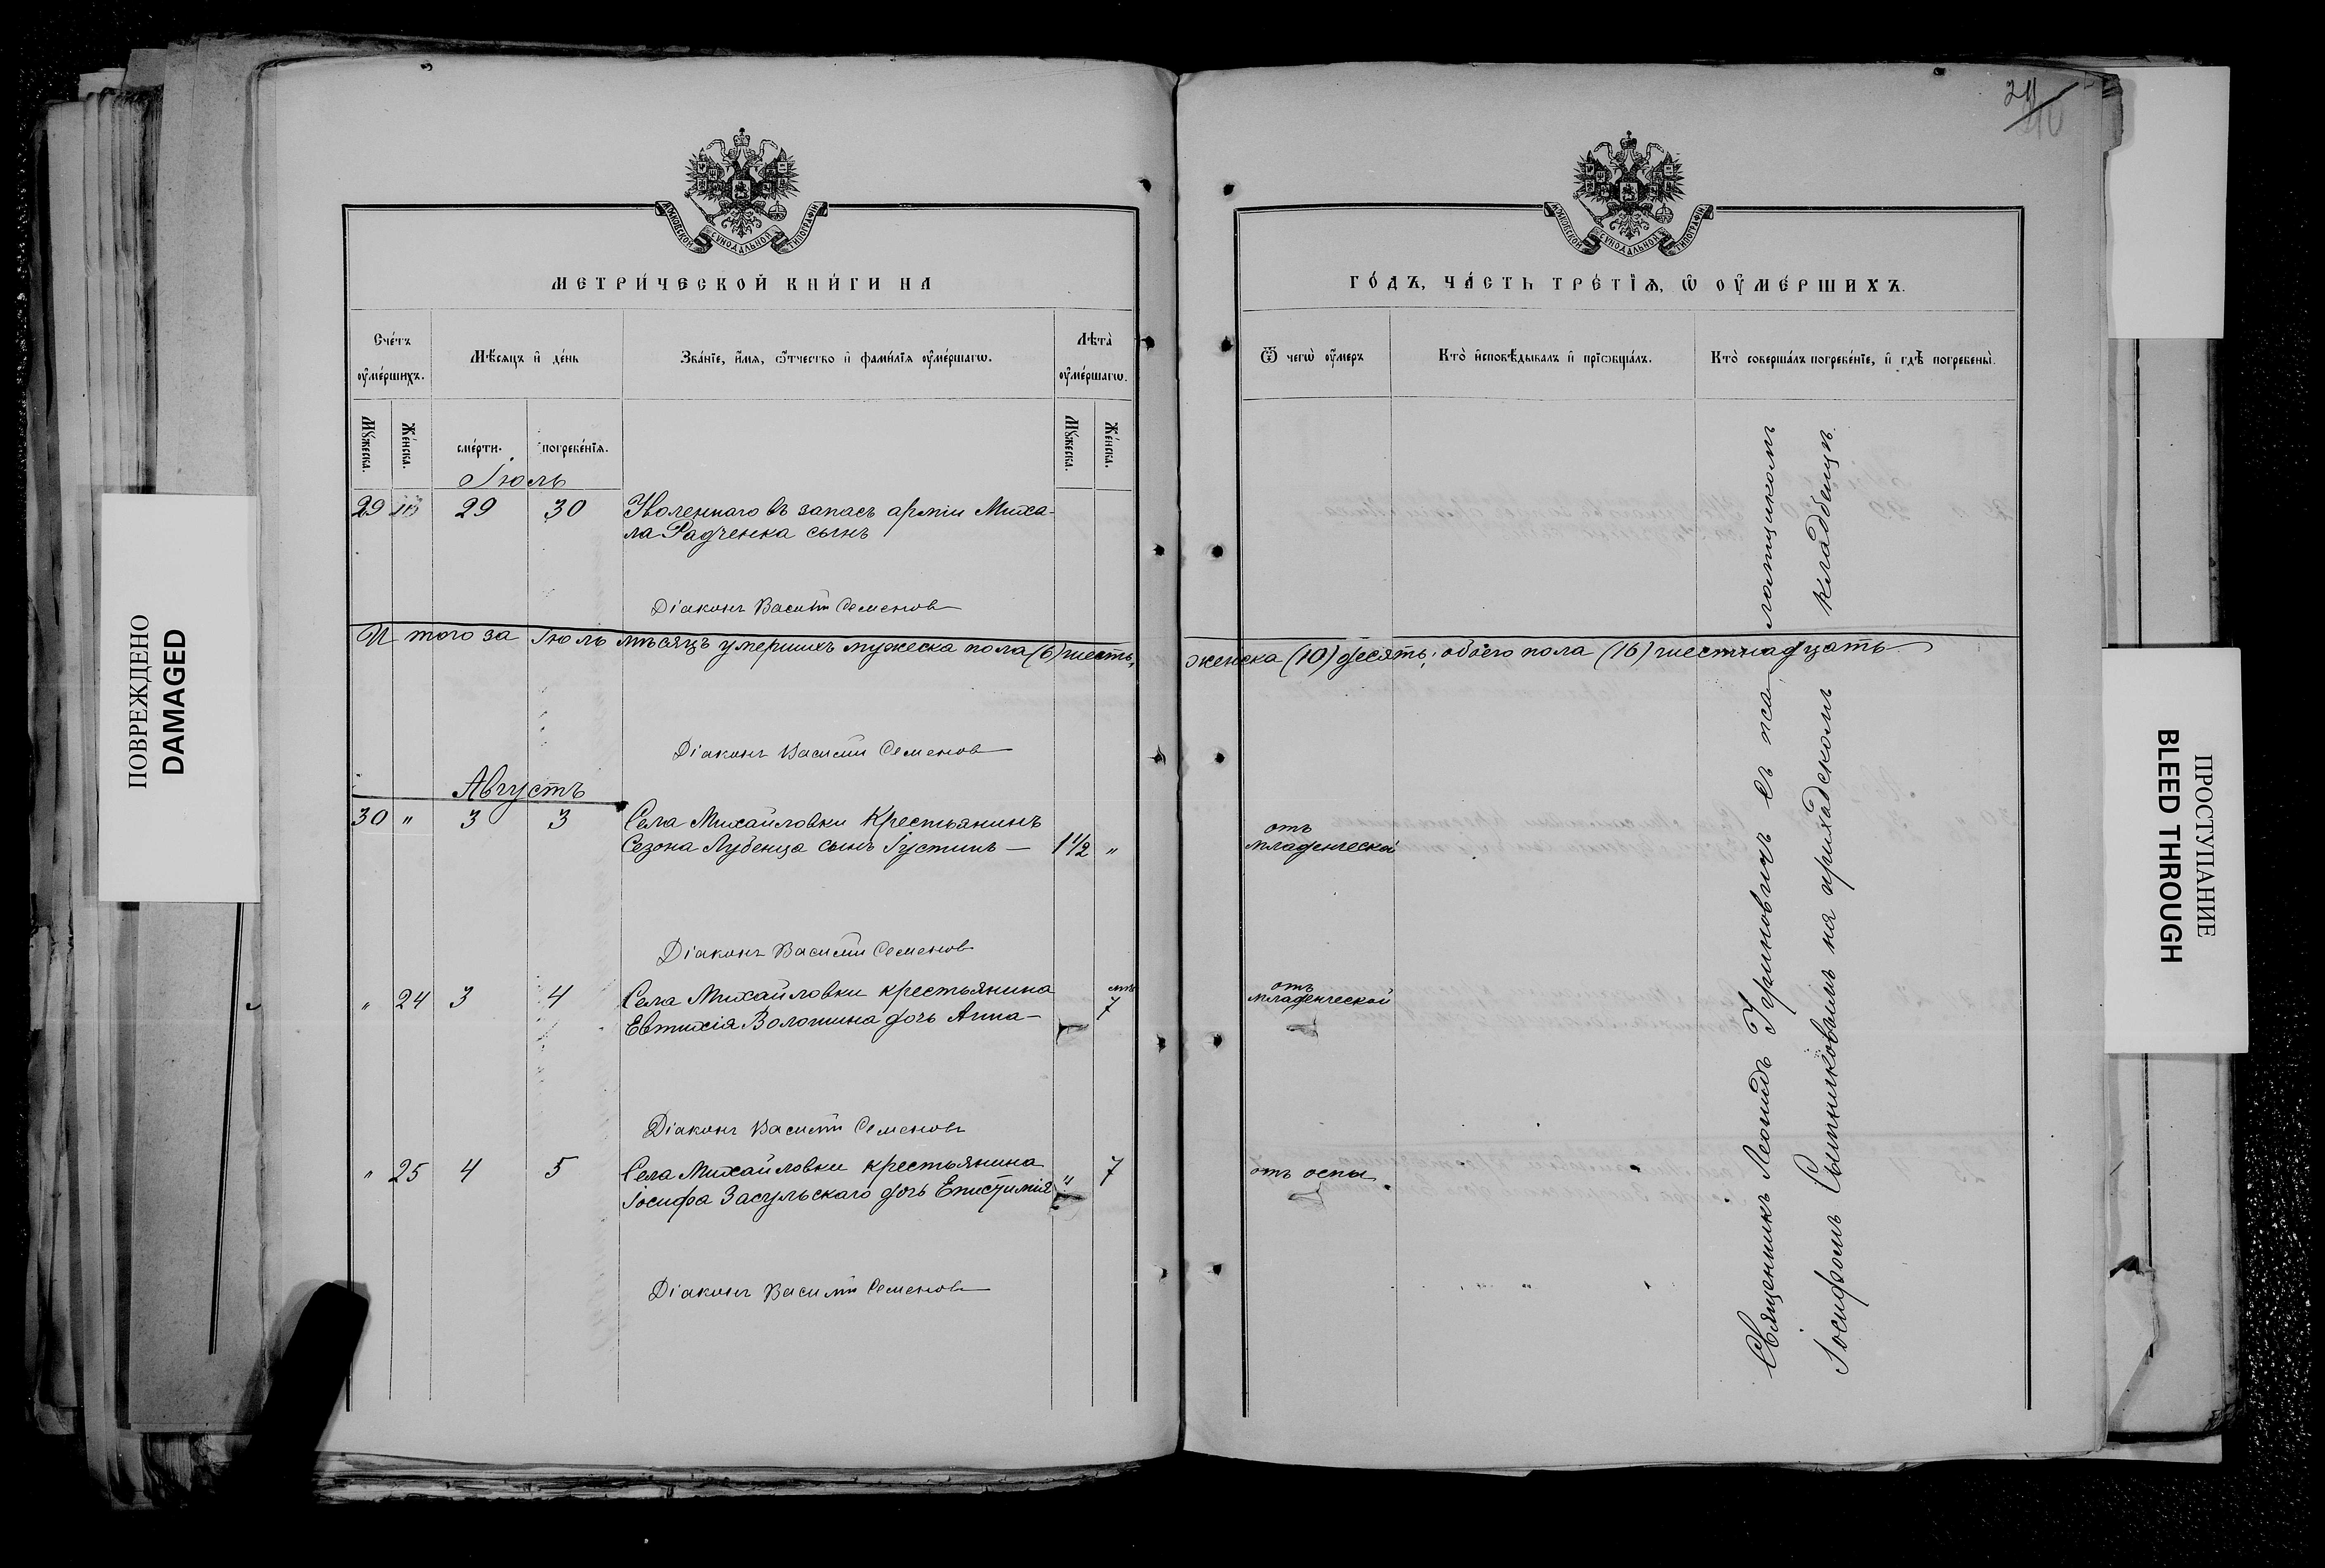 24
МОСКОВСКОЙ СУНОДАЛЬНОЙ ТИПОГРАФІИ
МЕТРИ́ЧЕСКОЙ КНИ́ГИ НА
Сче́тъ оу҆ме́ршихъ.
Мѣ́сяцъ и҆ де́нь
Зва́нїе, и҆́мя, ѻ҆́тчество и҆ фами́лїя оу҆ме́ршагѡ.
Лѣта̀ оу҆ме́ршагѡ.
Мꙋ́жеска.
Же́нска.
сме́рти.
погребе́нїя.
Мꙋ́жеска.
Же́нска.
Іюль
29 29 30 Уволеннаго въ запасъ арміи Миха-
ла Радченка сынъ
Діаконъ Василій Семеновъ
И того за Іюль мѣсяцъ умершихъ мужеска пола (6) шесть,
Діаконъ Василій Семеновъ
Августъ
30 " 3 3 Села Михайловки Крестьянинъ
Сазона Лубенца сынъ Іустинъ — 1 1/2 "
Діаконъ Василій Семеновъ
" 24 3 4 Села Михайловки крестьянина
Евтихія Волошина дочь Анна — 7
Діаконъ Василій Семеновъ
" 25 4 5 Села Михайловки крестьянина
Іосифа Засульскаго дочь Епистимія " 7
Діаконъ Василій Семеновъ
МОСКОВСКОЙ СУНОДАЛЬНОЙ ТИПОГРАФІИ
ГО́ДЪ, ЧА́СТЬ ТРЕ́ТЇЯ, Ѡ҆ ОУ҆МЕ́РШИХЪ.
Ѿ чегѡ̀ оу҆́меръ
Кто̀ и҆сповѣ́дывалъ и҆ прїѡбща́лъ.
Кто̀ соверша́лъ погребе́нїе, и҆ гдѣ̀ погребены̀.
женска (10) десять; обоего пола (16) шестнадцать
отъ
младенческой
отъ
младенческой
отъ оспы
Священникъ Леонидъ Уриновичъ съ псаломщикомъ
Іосифомъ на приходскомъ кладбищѣ.
ПОВРЕЖДЕНО
DAMAGED
ПРОСТУПАНИЕ
BLEED THROUGH